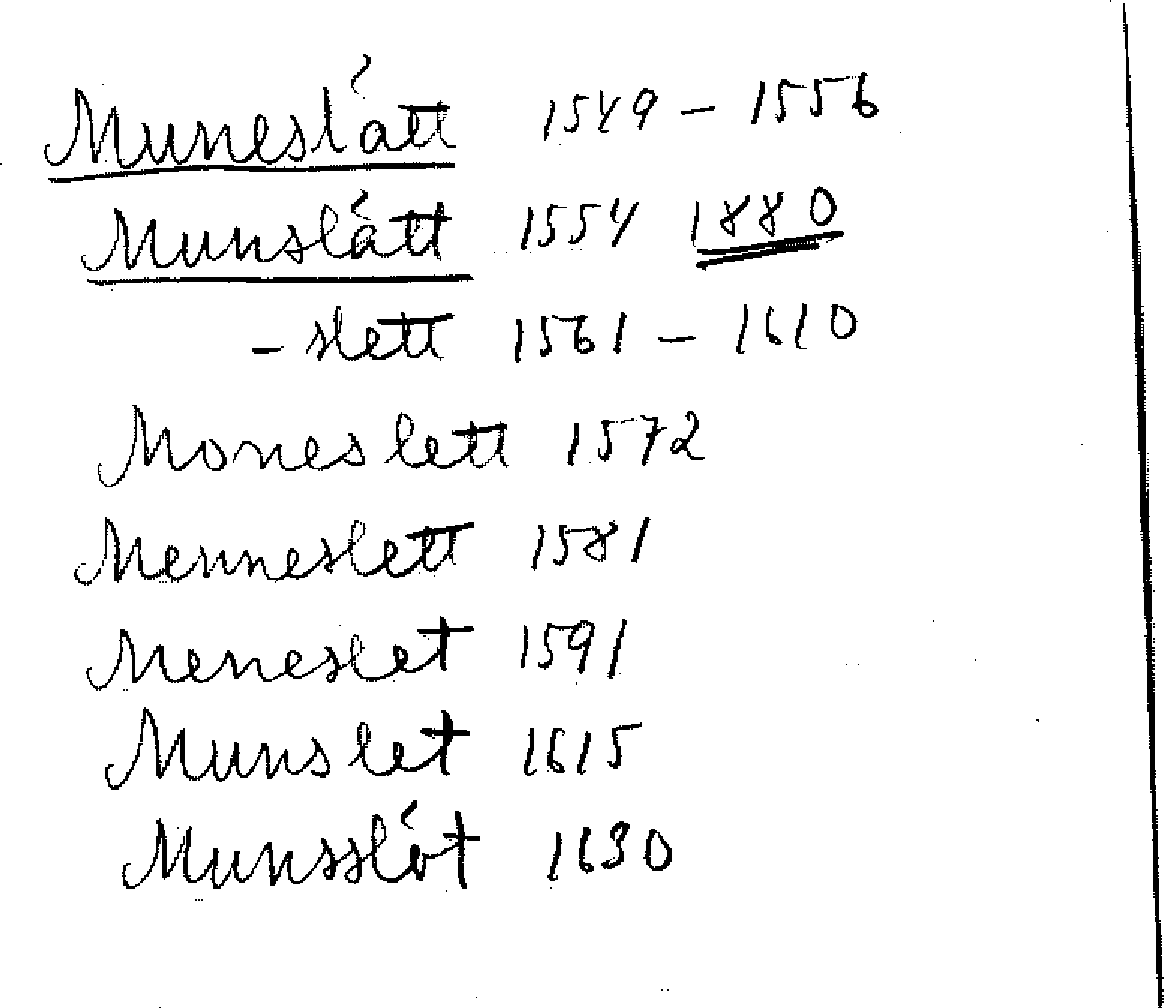 Muneslått 1549 – 1556
Munslått 1554 1880
– slett 1561 – 1610
Moneslett 1572
Menneslett 1581
Meneslet 1591
Munslet 1615
Munsslót 1630